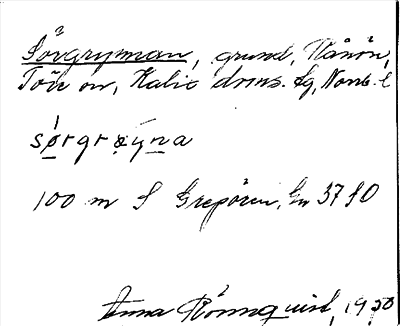 Sörgrynnan, grund, Rånön,
Töre sn, Kalix doms. tg, Norrb. l
sørgræyna
100 m S Grepören, Gn 37 SO
Anna Rönnquist, 1930